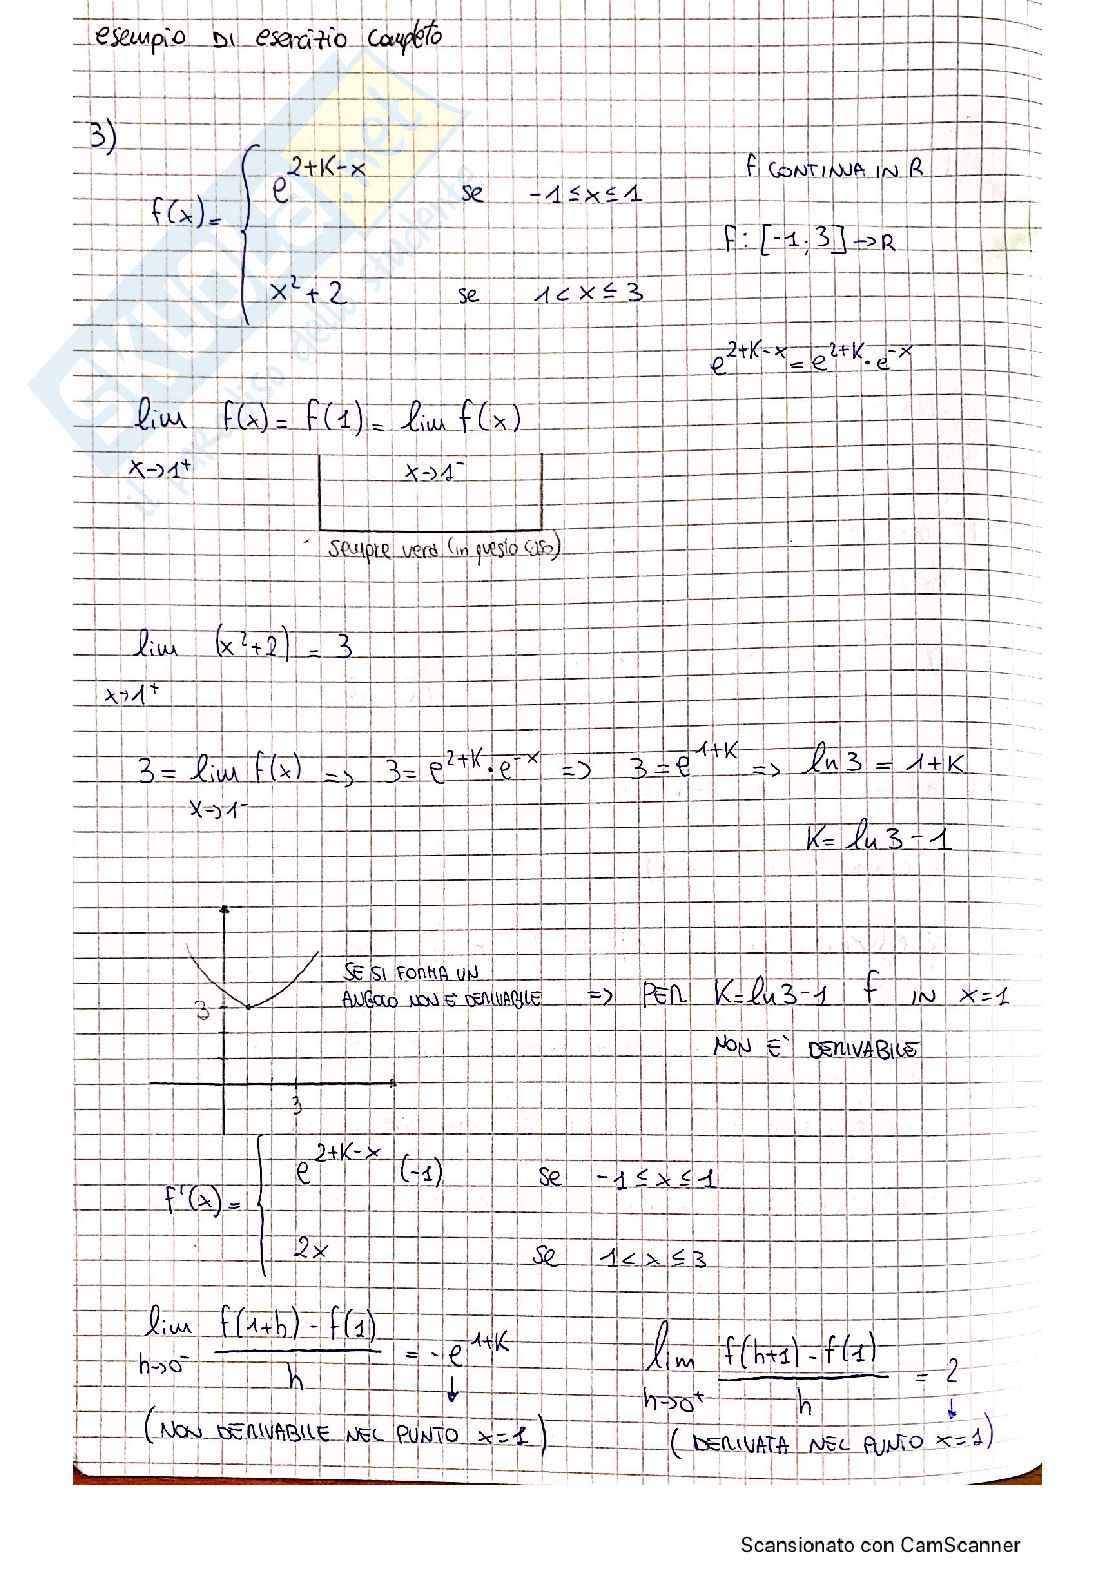 esempio DI esercizio completo
3)
f(x)= { e^{2+K-x} se -1≤x≤1
x²+2 se 1<x≤3
f CONTINUA IN R
f: [-1,3]→R
e^{2+K-x} = e^{2+K}·e^{-x}
lim f(x) = f(1) = lim f(x)
x→1⁺ x→1⁻
sempre vera (in questo caso)
lim (x²+2) = 3
x→1⁺
3 = lim f(x) => 3 = e^{2+K}·e^{-x} => 3 = e^{1+K} => ln3 = 1+K
x→1⁻
K = ln3-1
SE SI FORMA UN
ANGOLO NON E' DERIVABILE => PER K=ln3-1 f IN x=1
NON E' DERIVABILE
3
3
f'(x)= { e^{2+K-x} (-1) se -1≤x≤1
2x se 1<x≤3
lim f(1+h)-f(1) / h = -e^{1+K}
h→0⁻
(NON DERIVABILE NEL PUNTO x=1)
lim f(h+1)-f(1) / h = 2
h→0⁺
(DERIVATA NEL PUNTO x=1)
SKUOLA.net
il paradiso dello studente
Scansionato con CamScanner